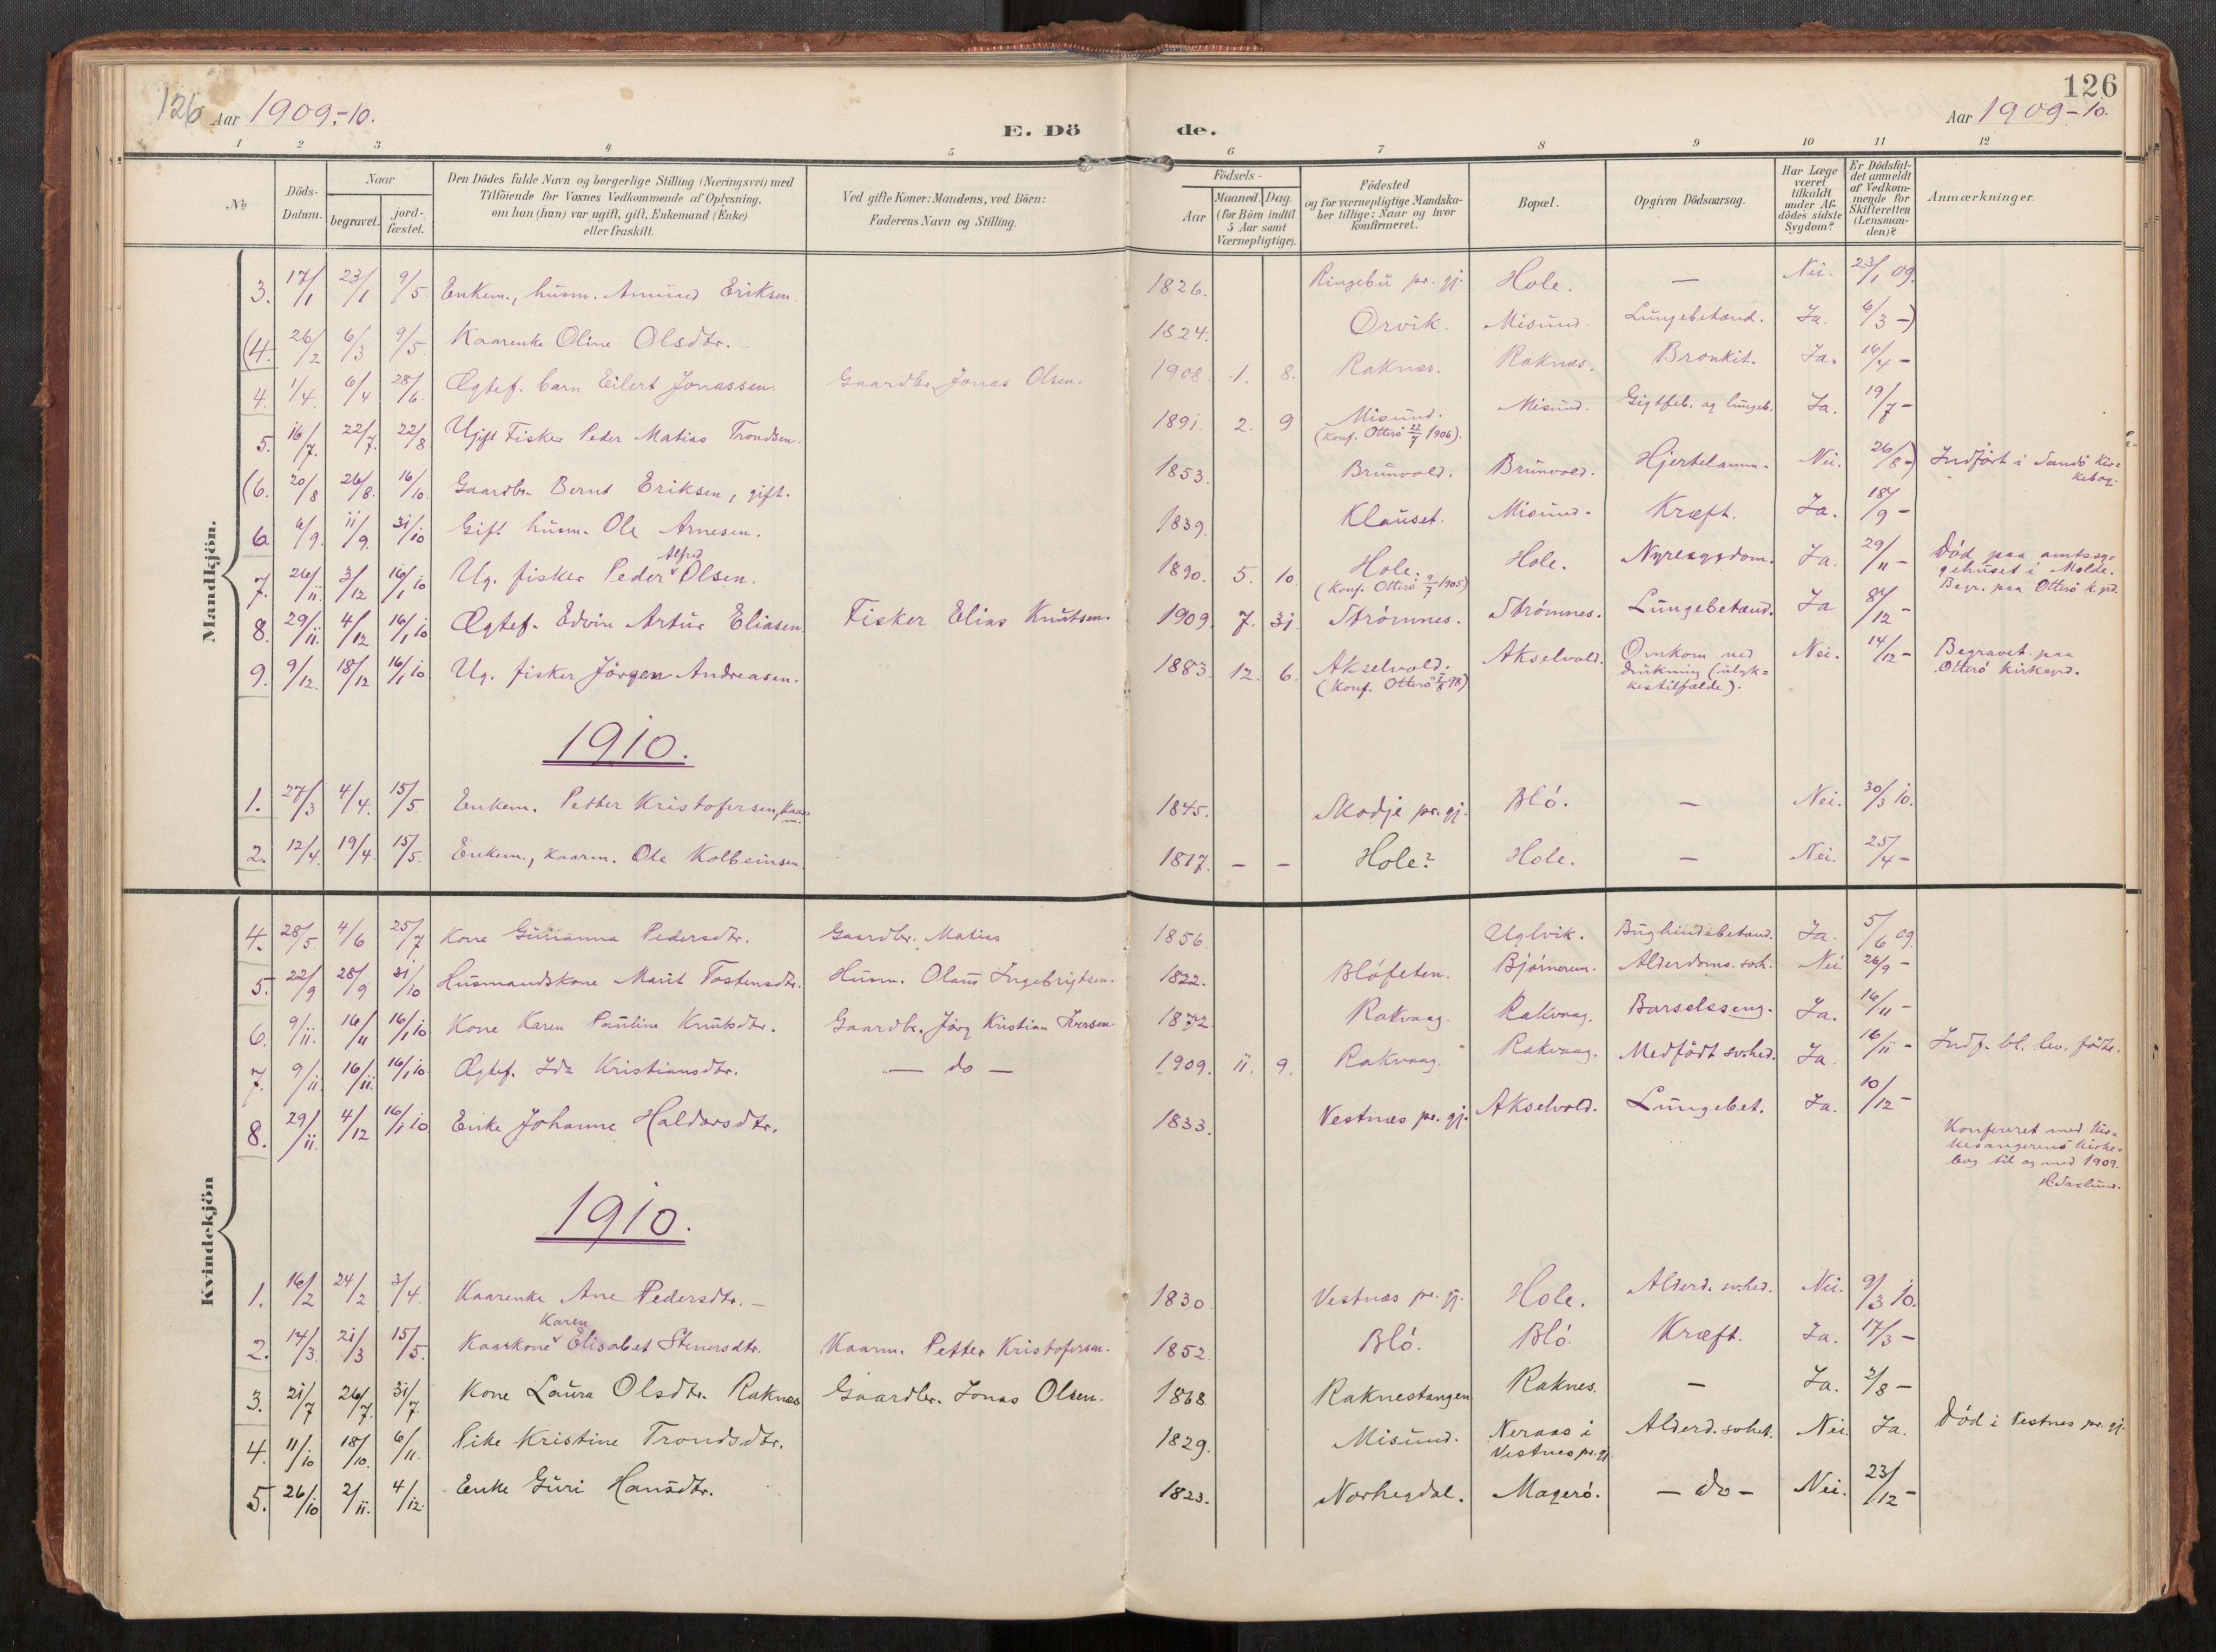 126 Aar 1909.-10.
E. Döde.
126
Aar 1909-10.
1 2 3 4 5 6 7 8 9 10 11 12
№
Döds-Datum.
Naar
begravet.
jord-fæstet.
Den Dödes fulde Navn og borgerlige Stilling (Næringsvei) med
Tilföiende for Voxnes Vedkommende af Oplysning,
om han (hun) var ugift, gift, Enkemand (Enke)
eller fraskilt.
Ved gifte Koner: Mandens, ved Börn:
Faderens Navn og Stilling.
Födsels-
Aar
Maaned. Dag.
(for Börn indtil
5 Aar samt
Værnepligtige).
Födested
og for værnepligtige Mandska-
ber tillige: Naar og hvor
konfirmeret.
Bopæl.
Opgiven Dödsaarsag.
Har Læge
været
tilkaldt
under Af-
dödes sidste
Sygdom?
Er Dödsfal-
det anmeldt
af Vedkom-
mende for
Skifteretten
(Lensman-
den)?
Anmærkninger.
Mandkjön.
3. 17/1 23/1 9/5 Enkem., husm. Amund Eriksen. 1826. Ringebu pr. gj. Hole. — Nei. 23/1 09.
(4. 26/2 6/3 9/5 Kaarenke Oline Olsdtr. — 1824. Orvik. Misund. Lungebetænd. Ja. 6/3 -)
4. 1/4. 6/4 28/6. Ægtef. barn Eilert Jonassen. Gaardbr. Jonas Olsen. 1908. 1. 8. Raknæs. Raknæs. Bronkit. Ja. 16/4 -
5. 16/7. 22/7. 22/8 Ugift Fisker Peder Matias Trondsen. 1891. 2. 9 Misund. Misund. Gigtfeb. og lungeb. Ja. 19/7 -
(Konf. Otterö 22/7 1906).
(6. 20/8 26/8. 16/10. Gaardbr. Bernt Eriksen, gift. 1853. Brunvold. Brunvold. Hjertelamm. Nei. 26/8 -) Indført i Sandö Kir-
kebog.
6. 6/9. 11/9. 31/10 Gift husm. Ole Arnesen. 1839. Klauset. Misund. Kræft. Ja. 18/9 -
7. 26/11. 3/12 16/1 10 Ug. fisker Peder Alfred Olsen. 1890. 5. 10 Hole. Hole. Nyresygdom. Ja. 29/11 - Död paa amtssy-
(Konf. Otterö 9/7 1905)
gehuset i Molde.
Begr. paa Otterö k.grd.
8. 29/11. 4/12 16/1 10 Ægtef. Edvin Artur Eliasen. Fisker Elias Knutsen. 1909. 7. 31. Strömnes. Strömnes. Lungebetænd. Ja 8/12 -
9. 9/12. 18/12 16/1 10 Ug. fisker Jörgen Andreasen. 1883. 12. 6. Akselvold. Akselvold. Omkom ved Nei. 14/12 - Begravet paa
(Konf. Otterö 98)
drukning (ulyk-
kestilfælde).
Otterö kirkegrd.
1910.
1. 27/3 4/4. 15/5 Enkem. Petter Kristofersen, kaar-
m. 1845. Skodje pr. gj. Blö. — Nei. 30/3 10.
2. 12/4. 19/4 15/5. Enkem., kaarm. Ole Kolbeinsen. 1817. - - Hole? Hole. — Nei. 25/4 -
Kvindekjön
4. 28/5 4/6 25/7 Kone Gurianna Pedersdtr. Gaardbr. Matias 1856. Uglvik. Bughindebetænd. Ja. 5/6 09.
5. 22/9 28/9 31/10 Husmandskone Marit Tostensdtr. Husm. Olaus Ingebrigtsen. 1822. Blöfeten. Björnerem. Alderdoms. svh. Nei. 26/9 -
6. 9/11. 16/11 16/1 10 Kone Karen Pauline Knutsdtr. Gaardbr. Jörg. Kristian Iversen. 1872. Rakvaag. Rakvaag. Barselsseng. Ja. 16/11 -
7. 9/11 16/11. 16/1 10 Ægtef. Ida Kristiansdtr. — do — 1909. 11. 9. Rakvaag. Rakvaag. Medfödt sv.hed. Ja. 16/11 - Indf. bl. lev. födte.
8. 29/11. 4/12 16/1 10 Enke Johanne Haldorsdtr. 1833. Vestnæs pr. gj. Akselvold. Lungebet. Ja. 10/12 -
Konfereret med kir-
kesangerens kirke-
bog til og med 1909.
H. Saxlund.
1910.
1. 16/2 24/2 3/4. Kaarenke Ane Pedersdtr. — 1830. Vestnæs pr. gj. Hole. Alderd. sv.hed. Nei. 9/3 10.
2. 14/3. 21/3 15/5. Kaarkone Karen Elisabet Stenersdtr. Kaarm. Petter Kristofersen. 1852. Blö. Blö. Kræft. Ja. 17/3 -
3. 21/7 26/7. 31/7. Kone Laura Olsdtr. Raknes Gaardbr. Jonas Olsen. 1868. Raknestangen Raknes. — Ja. 2/8 -
4. 11/10 18/10. 6/11. Pike Kristine Trondsdtr. 1829. Misund. Neraas i Alderd. svhet. Nei. Ja. Död i Vestnes pr. gj.
Vestnes pr. gj.
5. 26/10 2/11. 4/12. Enke Guri Hansdtr. 1823. Norhegdal. Magerö. — do — Nei. 23/12 -